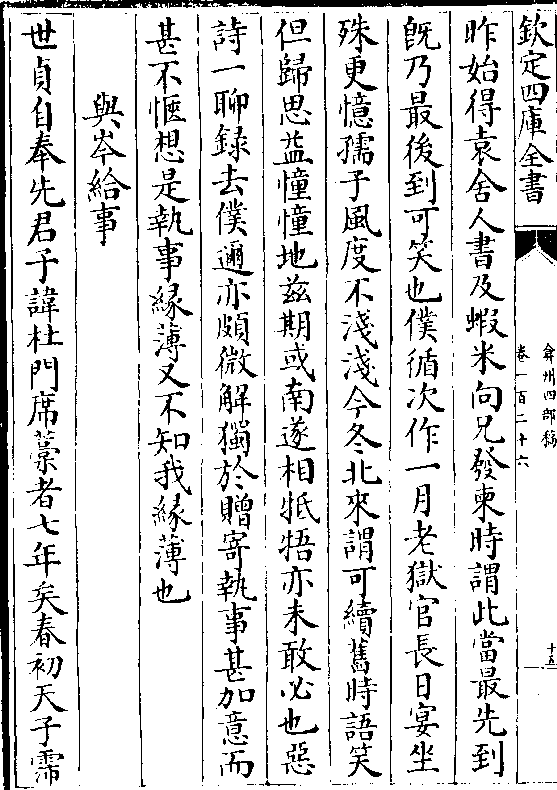 欽定四庫全書
弇州四部稿
卷一百二十六
十五
昨始得袁舍人書及蝦米向兄發柬時謂此當最先到
旣乃最後到可笑也僕循次作一月老獄官長日宴坐
殊更憶孺子風度不淺淺今冬北來謂可續舊時語笑
但歸思益憧憧地兹期或南遂相牴牾亦未敢必也惡
詩一聊録去僕邇亦頗微解獨於贈寄執事甚加意而
甚不愜想是執事緣薄又不知我緣薄也
與岑給事
世貞自奉先君子諱杜門席藁者七年矣春初天子霈